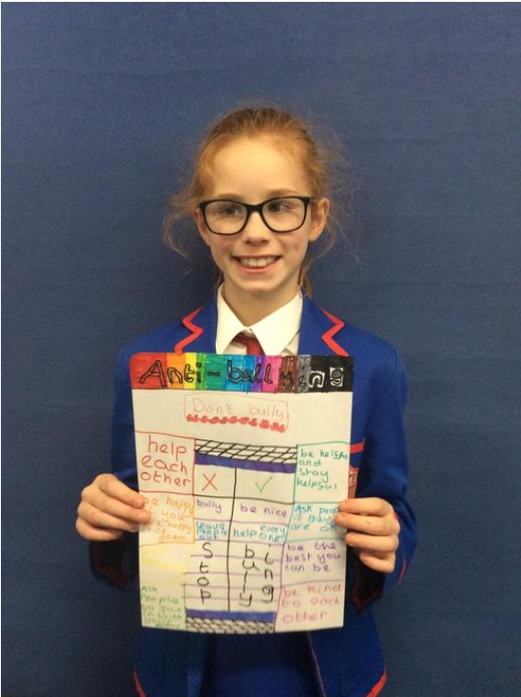 Anti-bullying
Don't bully
help
each
other
X ✓
bully
be nice
leave
people
out
help every
one
Stop
bullying
be happy
you
be happy
Ask
People
be helpful
and
stay
helpful
Ask
are ok
be the
best you
can be
be kind
to each
other